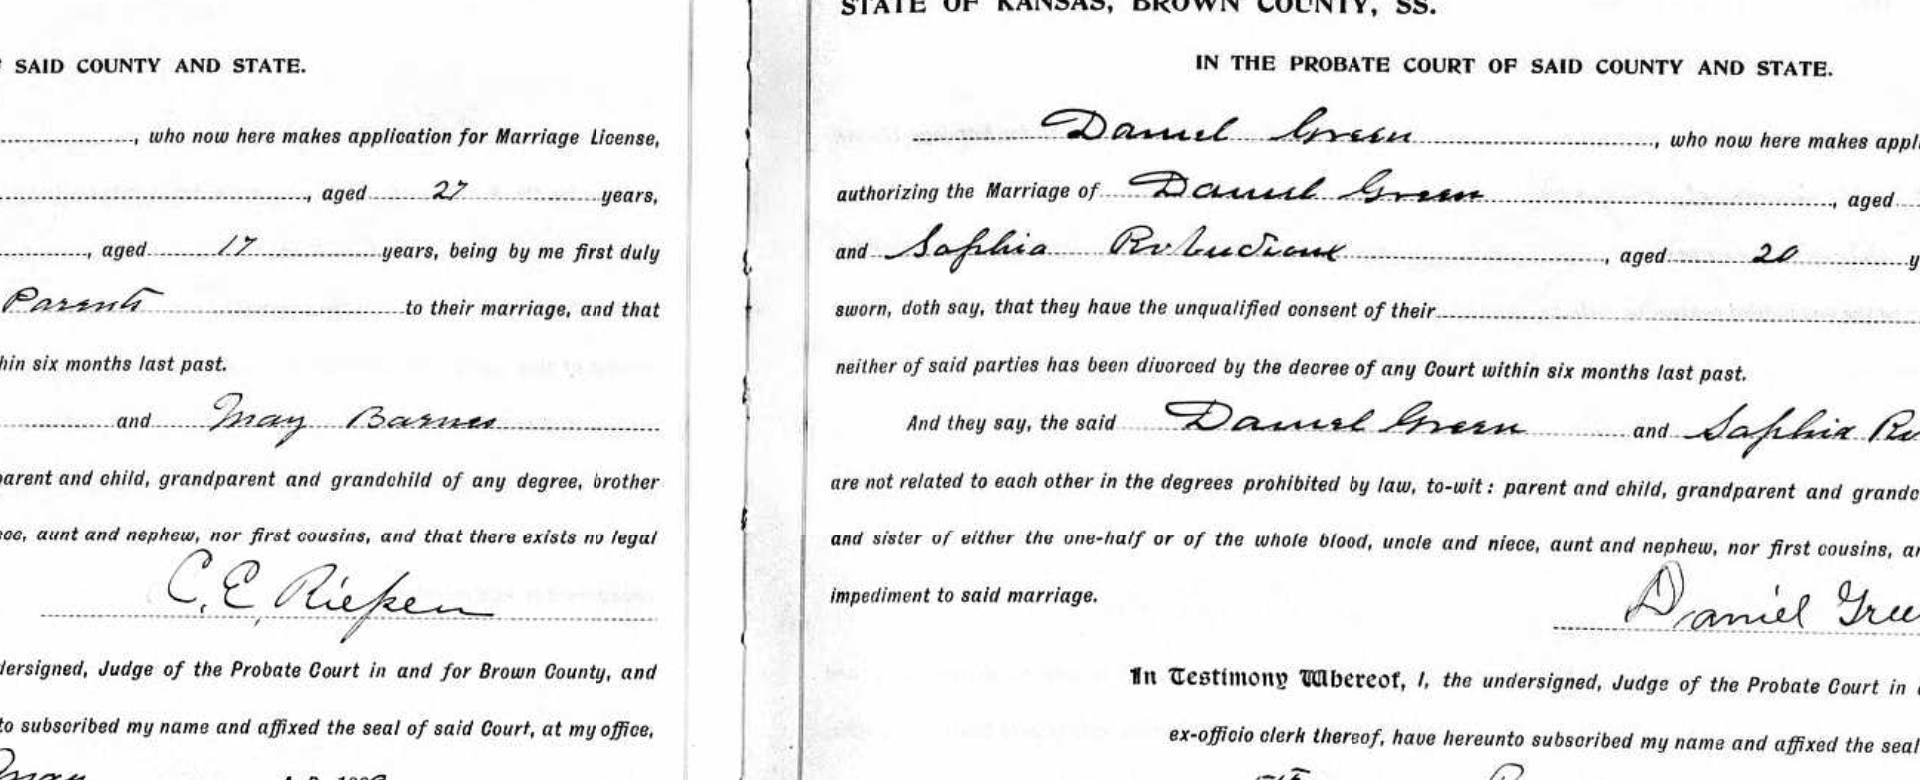 SAID COUNTY AND STATE.
, who now here makes application for Marriage License,
, aged 27 years,
, aged 17 years, being by me first duly
Parents to their marriage, and that
hin six months last past.
and May Barnes
parent and child, grandparent and grandchild of any degree, brother
ece, aunt and nephew, nor first cousins, and that there exists no legal
C. E. Riepen
dersigned, Judge of the Probate Court in and for Brown County, and
to subscribed my name and affixed the seal of said Court, at my office,
May
STATE OF KANSAS, BROWN COUNTY, SS.
IN THE PROBATE COURT OF SAID COUNTY AND STATE.
Daniel Green, who now here makes appli
authorizing the Marriage of Daniel Green, aged
and Sophia Robudioux, aged 20 y
sworn, doth say, that they have the unqualified consent of their
neither of said parties has been divorced by the decree of any Court within six months last past.
And they say, the said Daniel Green and Sophia Ro
are not related to each other in the degrees prohibited by law, to-wit: parent and child, grandparent and grandc
and sister of either the one-half or of the whole blood, uncle and niece, aunt and nephew, nor first cousins, an
impediment to said marriage.
Daniel Gree
In Testimony Whereof, I, the undersigned, Judge of the Probate Court in
ex-officio clerk thereof, have hereunto subscribed my name and affixed the seal